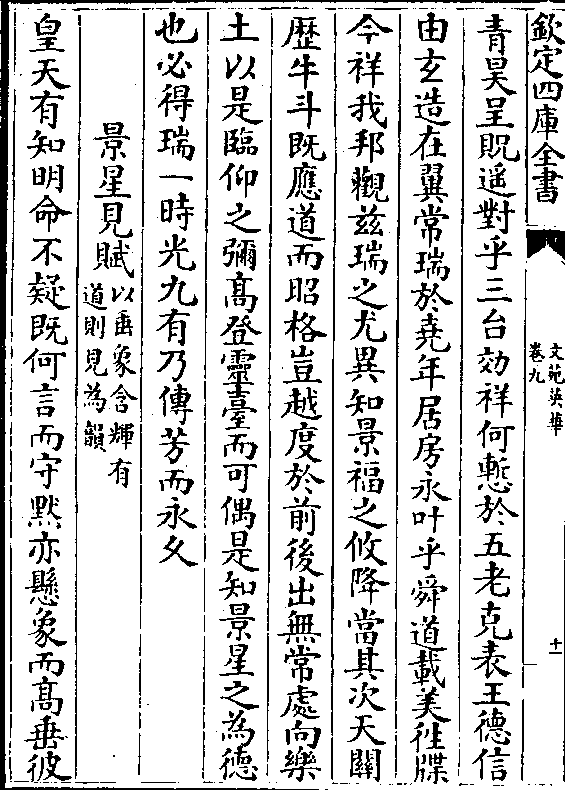 欽定四庫全書
文苑英華
卷九
十一
青昊呈貺遥對乎三台効祥何慙於五老克表王德信
由玄造在翼常瑞於堯年居房永叶乎舜道載美徃牒
今祥我邦觀兹瑞之尤異知景福之攸降當其次天關
歴牛斗既應道而昭格豈越度於前後出無常處向樂
土以是臨仰之彌髙登靈臺而可偶是知景星之為德
也必得瑞一時光九有乃傳芳而永久
景星見賦以垂象含輝有
道則見為韻
皇天有知明命不疑既何言而守黙亦懸象而髙垂彼